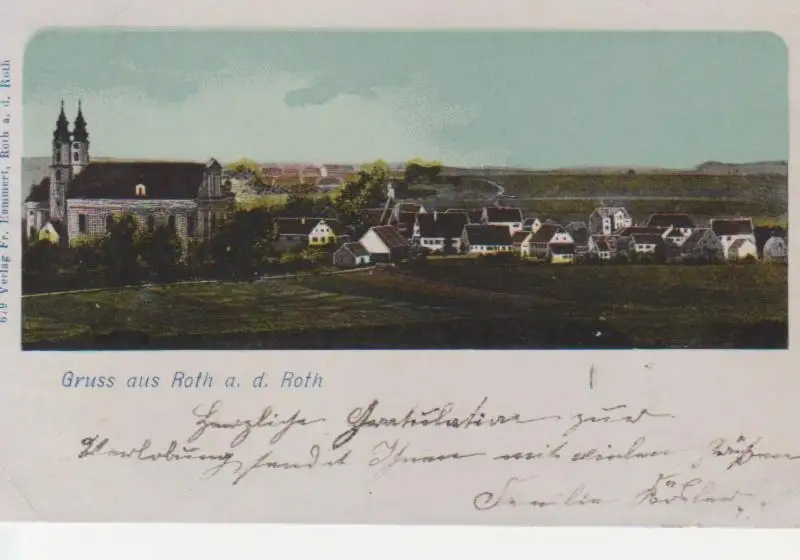 679 Verlag Fr. Emmert, Roth a. d. Roth
Gruss aus Roth a. d. Roth
Herzliche Gratulation zur
Verlobung sendet Ihnen mit vielen Grüßen
Familie